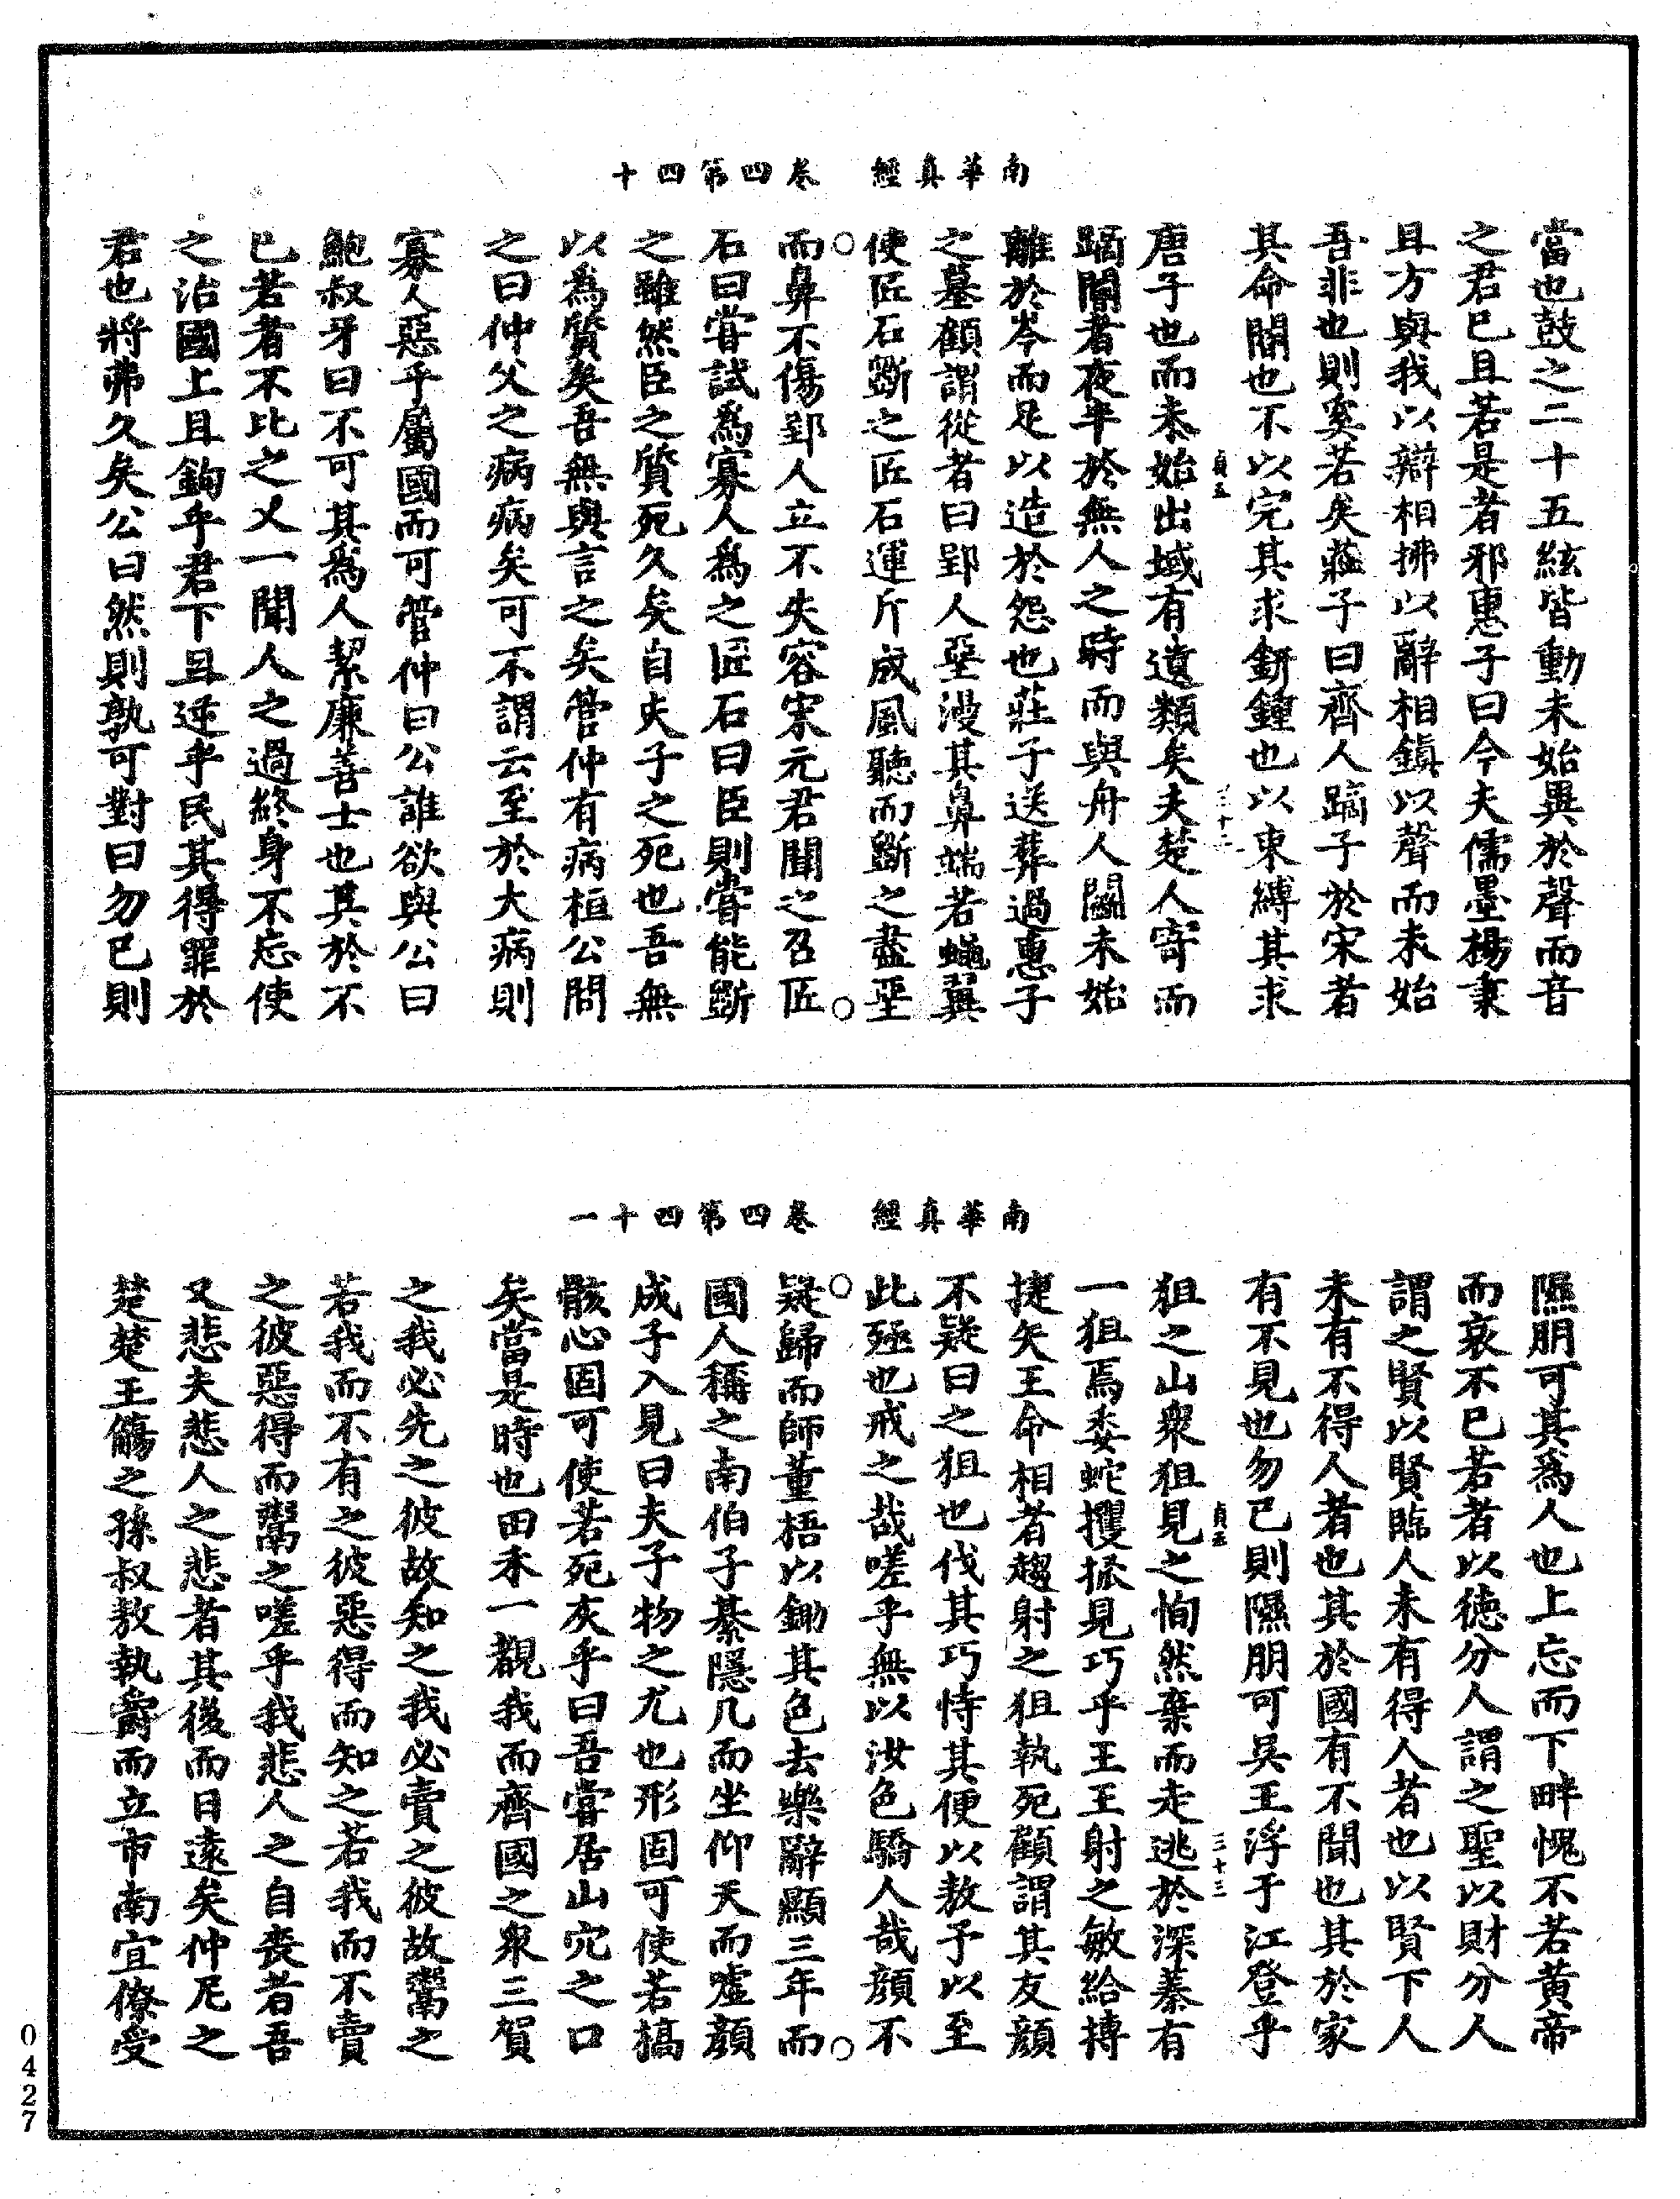 南華真經　卷四第四十
當也鼓之二十五絃皆動未始異於聲而音
之君已且若是者邪惠子曰今夫儒墨楊秉
且方與我以辯相拂以辭相鎮以聲而未始
吾非也則奚若矣莊子曰齊人蹢子於宋者
其命閽也不以完其求鈃鍾也以束縛其求
貞五
三十二
唐子也而未始出域有遺類矣夫楚人寄而
蹢閽者夜半於無人之時而與舟人鬬未始
離於岑而足以造於怨也莊子送葬過惠子
之墓顧謂從者曰郢人堊漫其鼻端若蠅翼
使匠石斲之匠石運斤成風聽而斲之盡堊
而鼻不傷郢人立不失容宋元君聞之召匠
石曰甞試爲寡人爲之匠石曰臣則甞能斲
之雖然臣之質死久矣自夫子之死也吾無
以爲質矣吾無與言之矣管仲有病桓公問
之曰仲父之病病矣可不謂云至於大病則
寡人惡乎屬國而可管仲曰公誰欲與公曰
鮑叔牙曰不可其爲人絜廉善士也其於不
已若者不比之又一聞人之過終身不忘使
之治國上且鉤乎君下且逆乎民其得罪於
君也將弗久矣公曰然則孰可對曰勿已則
南華真經　卷四第四十一
隰朋可其爲人也上忘而下畔愧不若黃帝
而哀不已若者以德分人謂之聖以財分人
謂之賢以賢臨人未有得人者也以賢下人
未有不得人者也其於國有不聞也其於家
有不見也勿已則隰朋可吳王浮于江登乎
貞五
三十三
狙之山衆狙見之恂然棄而走逃於深蓁有
一狙焉委蛇攫搔見巧乎王王射之敏給搏
捷矢王命相者趨射之狙執死顧謂其友顔
不疑曰之狙也伐其巧恃其便以敖予以至
此殛也戒之哉嗟乎無以汝色驕人哉顔不
疑歸而師董梧以鋤其色去樂辭顯三年而
國人稱之南伯子綦隱几而坐仰天而噓顔
成子入見曰夫子物之尤也形固可使若槁
骸心固可使若死灰乎曰吾甞居山穴之口
矣當是時也田禾一覩我而齊國之衆三賀
之我必先之彼故知之我必賣之彼故鬻之
若我而不有之彼惡得而知之若我而不賣
之彼惡得而鬻之嗟乎我悲人之自喪者吾
又悲夫悲人之悲者其後而日遠矣仲尼之
楚楚王觴之孫叔敖執爵而立市南宜僚受
0427